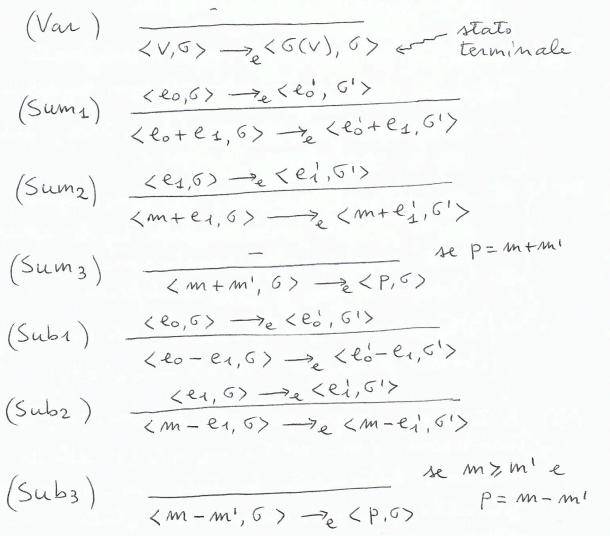 (Var) -
<v,σ> →e <σ(v), σ> ← stato terminale
(Sum1) <e0,σ> →e <e0', σ'>
<e0+e1, σ> →e <e0'+e1, σ'>
(Sum2) <e1,σ> →e <e1', σ'>
<m+e1, σ> →e <m+e1', σ'>
(Sum3) - se p = m+m'
<m+m', σ> →e <p,σ>
(Sub1) <e0,σ> →e <e0', σ'>
<e0-e1, σ> →e <e0'-e1, σ'>
(Sub2) <e1, σ> →e <e1', σ'>
<m-e1, σ> →e <m-e1', σ'>
(Sub3) se m ⩾ m' e
p = m-m'
<m-m', σ> →e <p,σ>